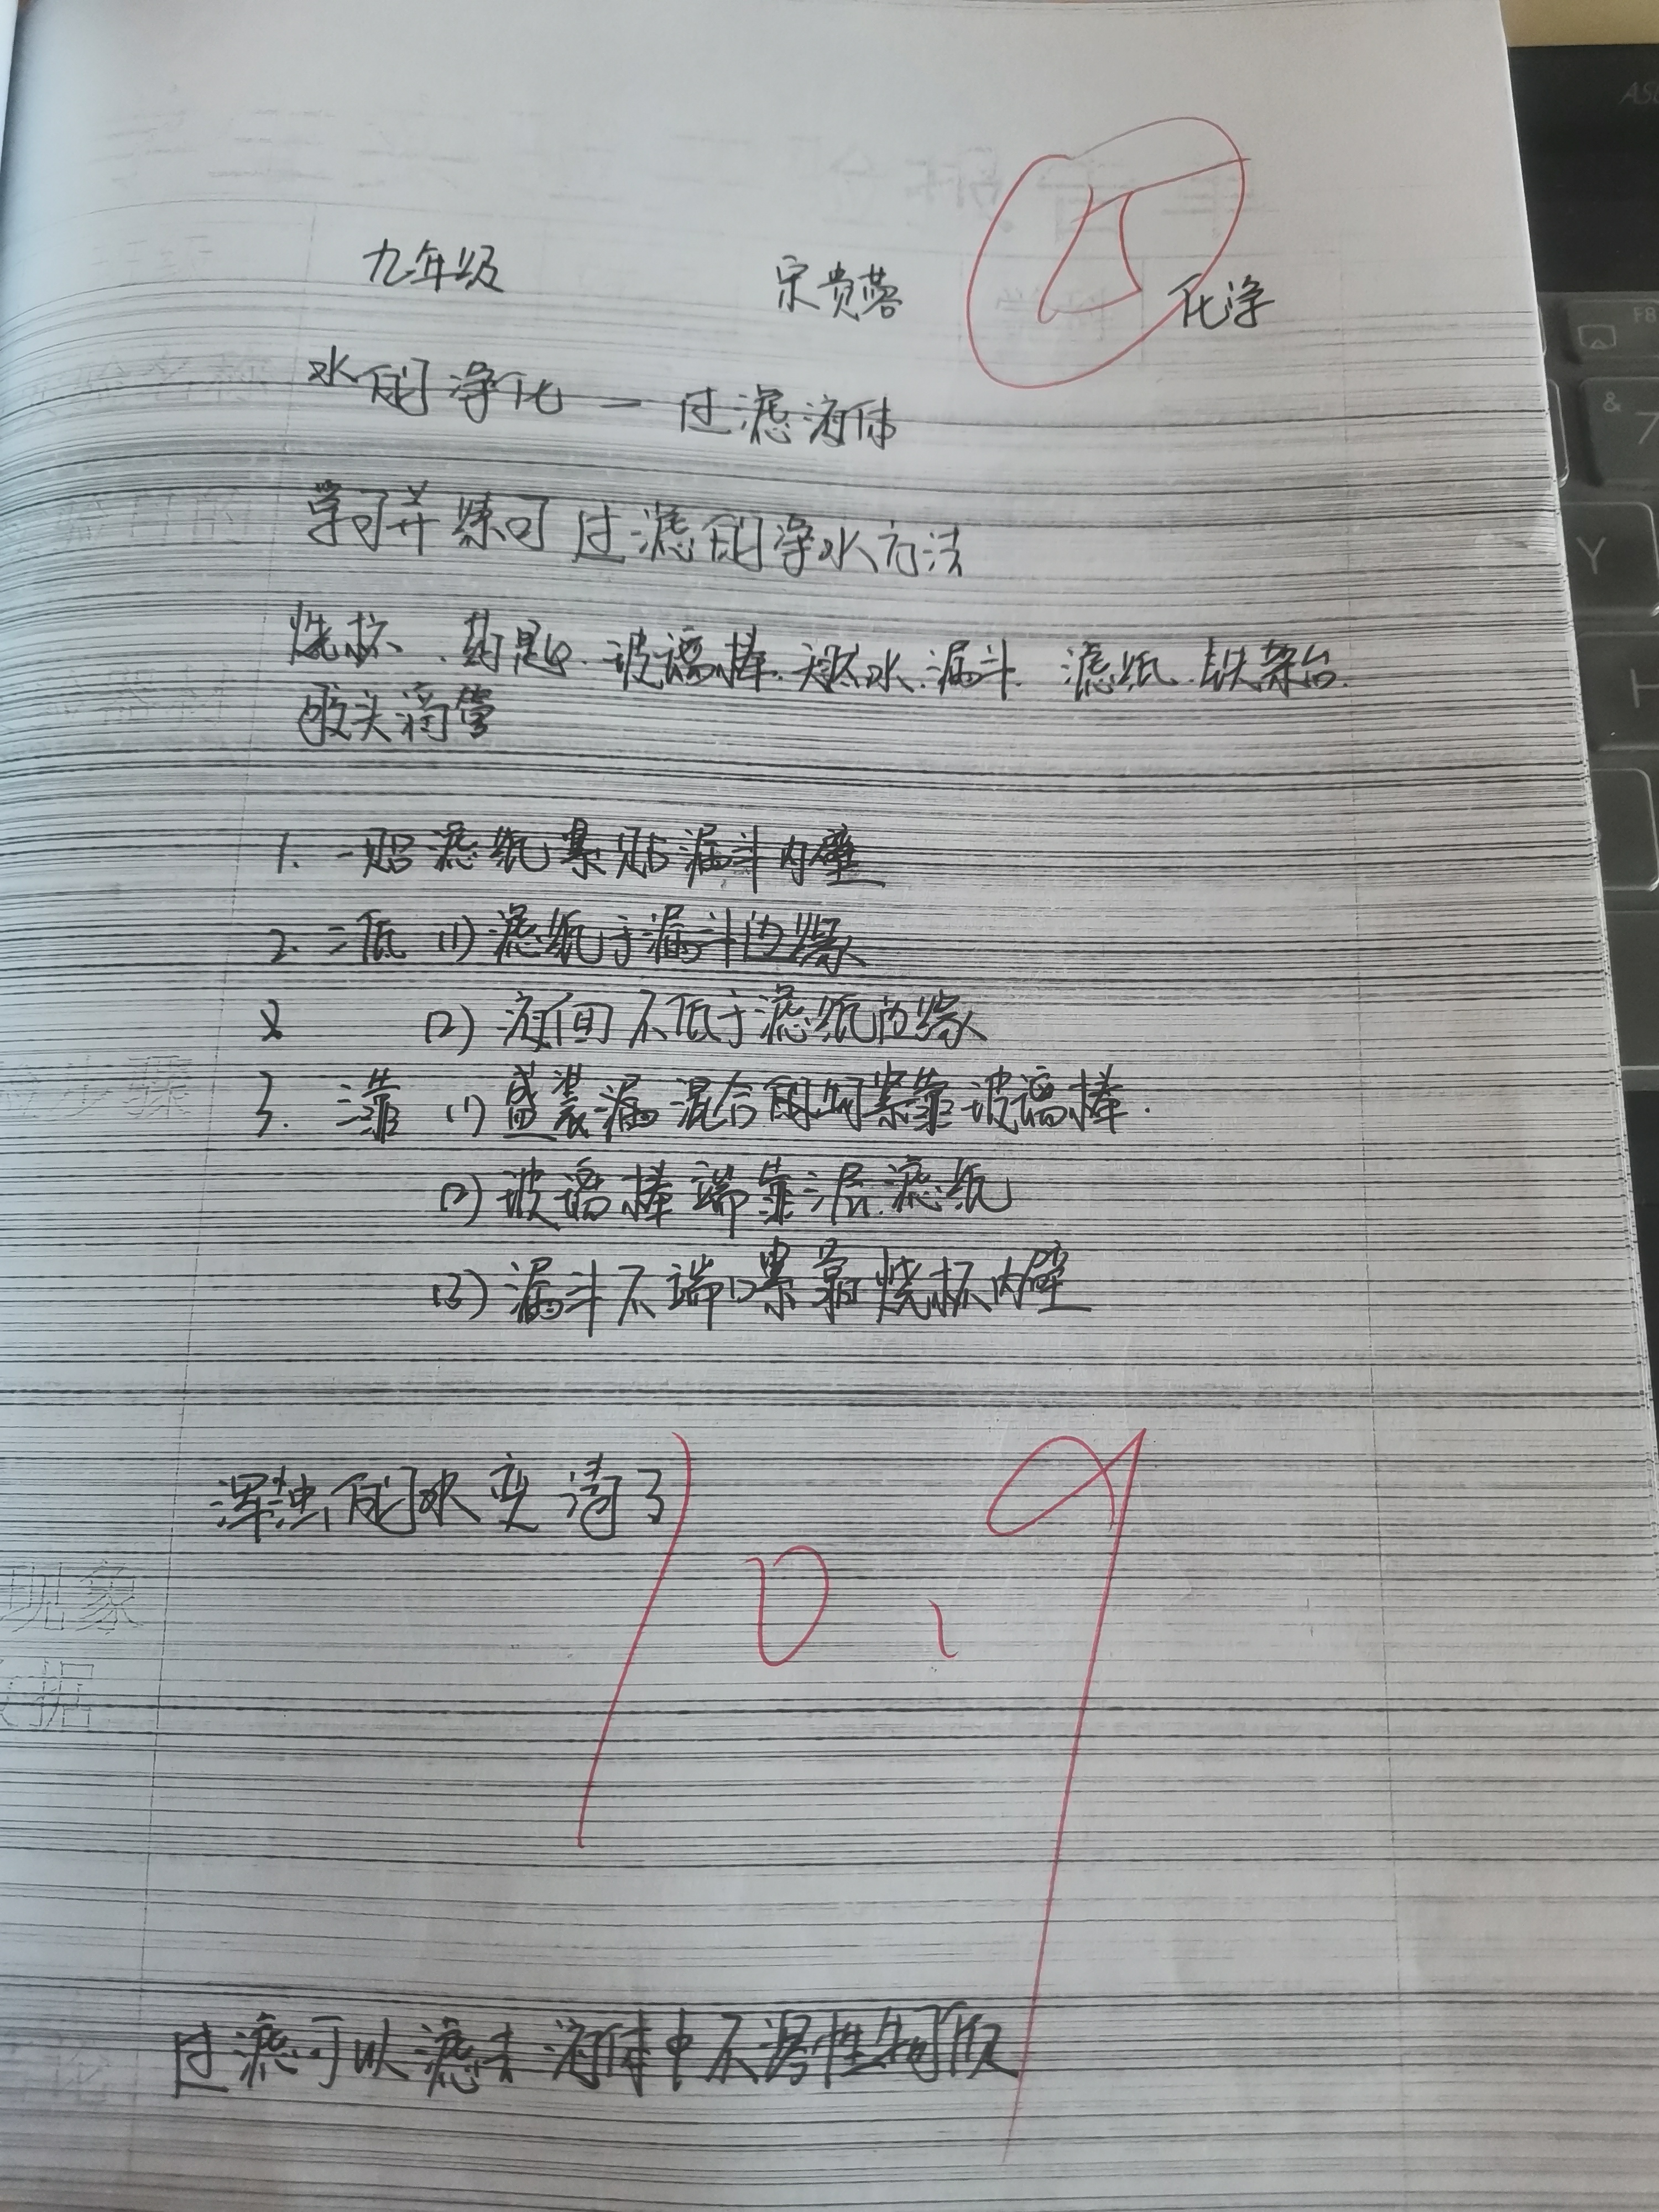 九年级 宋贵蓉 化学
水的净化一过滤液体
学习并练习过滤的净水方法
烧杯.药匙.玻璃棒.天然水.漏斗.滤纸.铁架台.
胶头滴管
1. 一贴滤纸紧贴漏斗内壁
2. 二低 (1) 滤纸于漏斗边缘
(2) 液面不低于滤纸边缘
3. 三靠 (1) 盛装漏混合的 紧靠玻璃棒.
(2) 玻璃棒端靠三层滤纸
(3) 漏斗下端口紧靠烧杯内壁
浑浊的水变清了
10.9
现象
数据
过滤可以滤去液体中不溶性物质